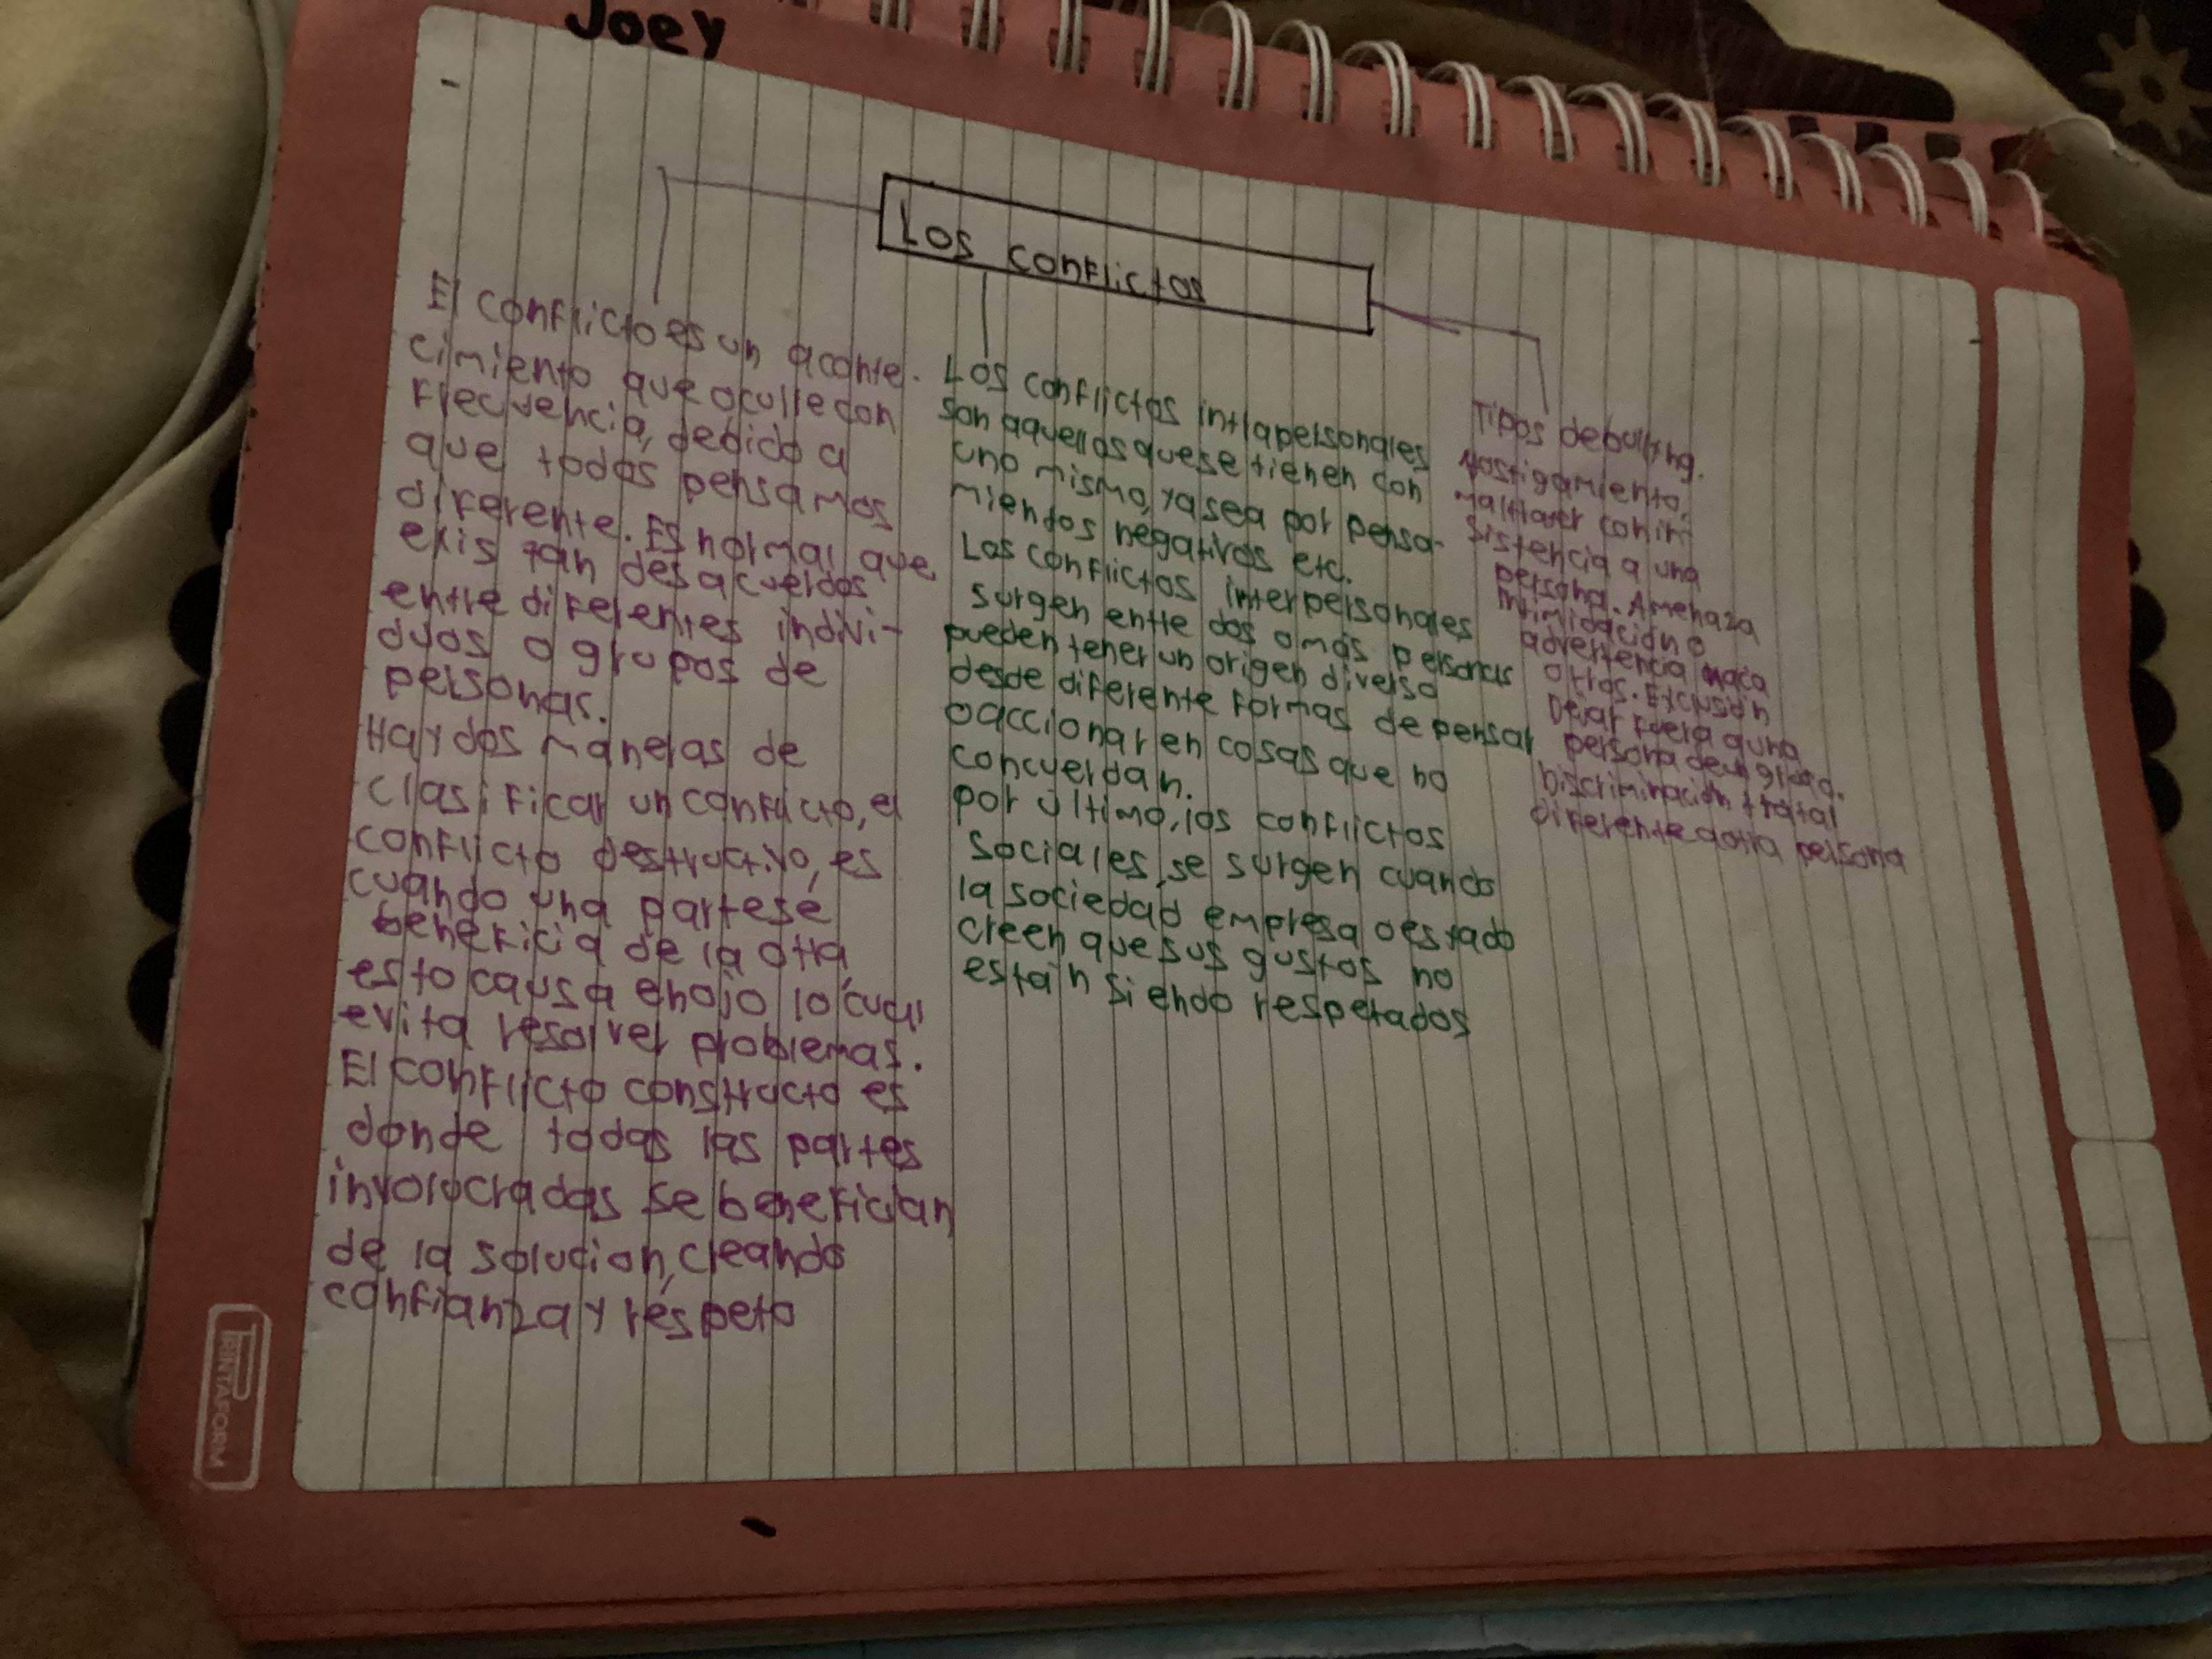 Joey
Los conflictos
El conflicto es un aconte-
cimiento que ocurre con
frecuencia, debido a
que todos pensamos
diferente. Es normal que
existan desacuerdos
entre diferentes indivi-
duos o grupos de
personas.
Hay dos maneras de
clasificar un conflicto, el
conflicto destructivo, es
cuando una parte se
beneficia de la otra,
esto causa enojo lo cual
evita resolver problemas.
El conflicto constructo es
donde todas las partes
involucradas se benefician
de la solucion, creando
confianza y respeto
Los conflictos intrapersonales
son aquellos que se tienen con
uno mismo, ya sea por pensa-
mientos negativos etc.
Los conflictos interpersonales
surgen entre dos o más personas
pueden tener un origen diverso
desde diferente formas de pensar
o accionar en cosas que no
concuerdan.
por último, los conflictos
sociales, se surgen cuando
la sociedad empresa o estado
creen que sus gustos no
están siendo respetados
Tipos de
Hostigamiento,
maltratar con in
sistencia a una
persona. Amenaza
intimidación o
advertencia
otros. Exclusión
Dejar fuera a una
persona de un grupo.
Discriminación tratar
diferente a otra persona
PRINTAFORM